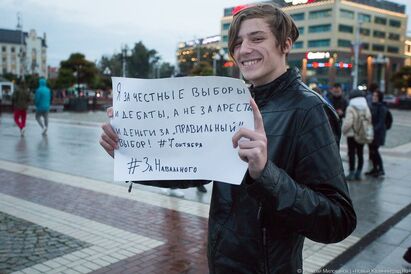 Я ЗА ЧЕСТНЫЕ ВЫБОРЫ
И ДЕБАТЫ, А НЕ ЗА АРЕСТЫ
И ДЕНЬГИ ЗА „ПРАВИЛЬНЫЙ"
ВЫБОР! #7октября
#ЗАНАВАЛЬНОГО